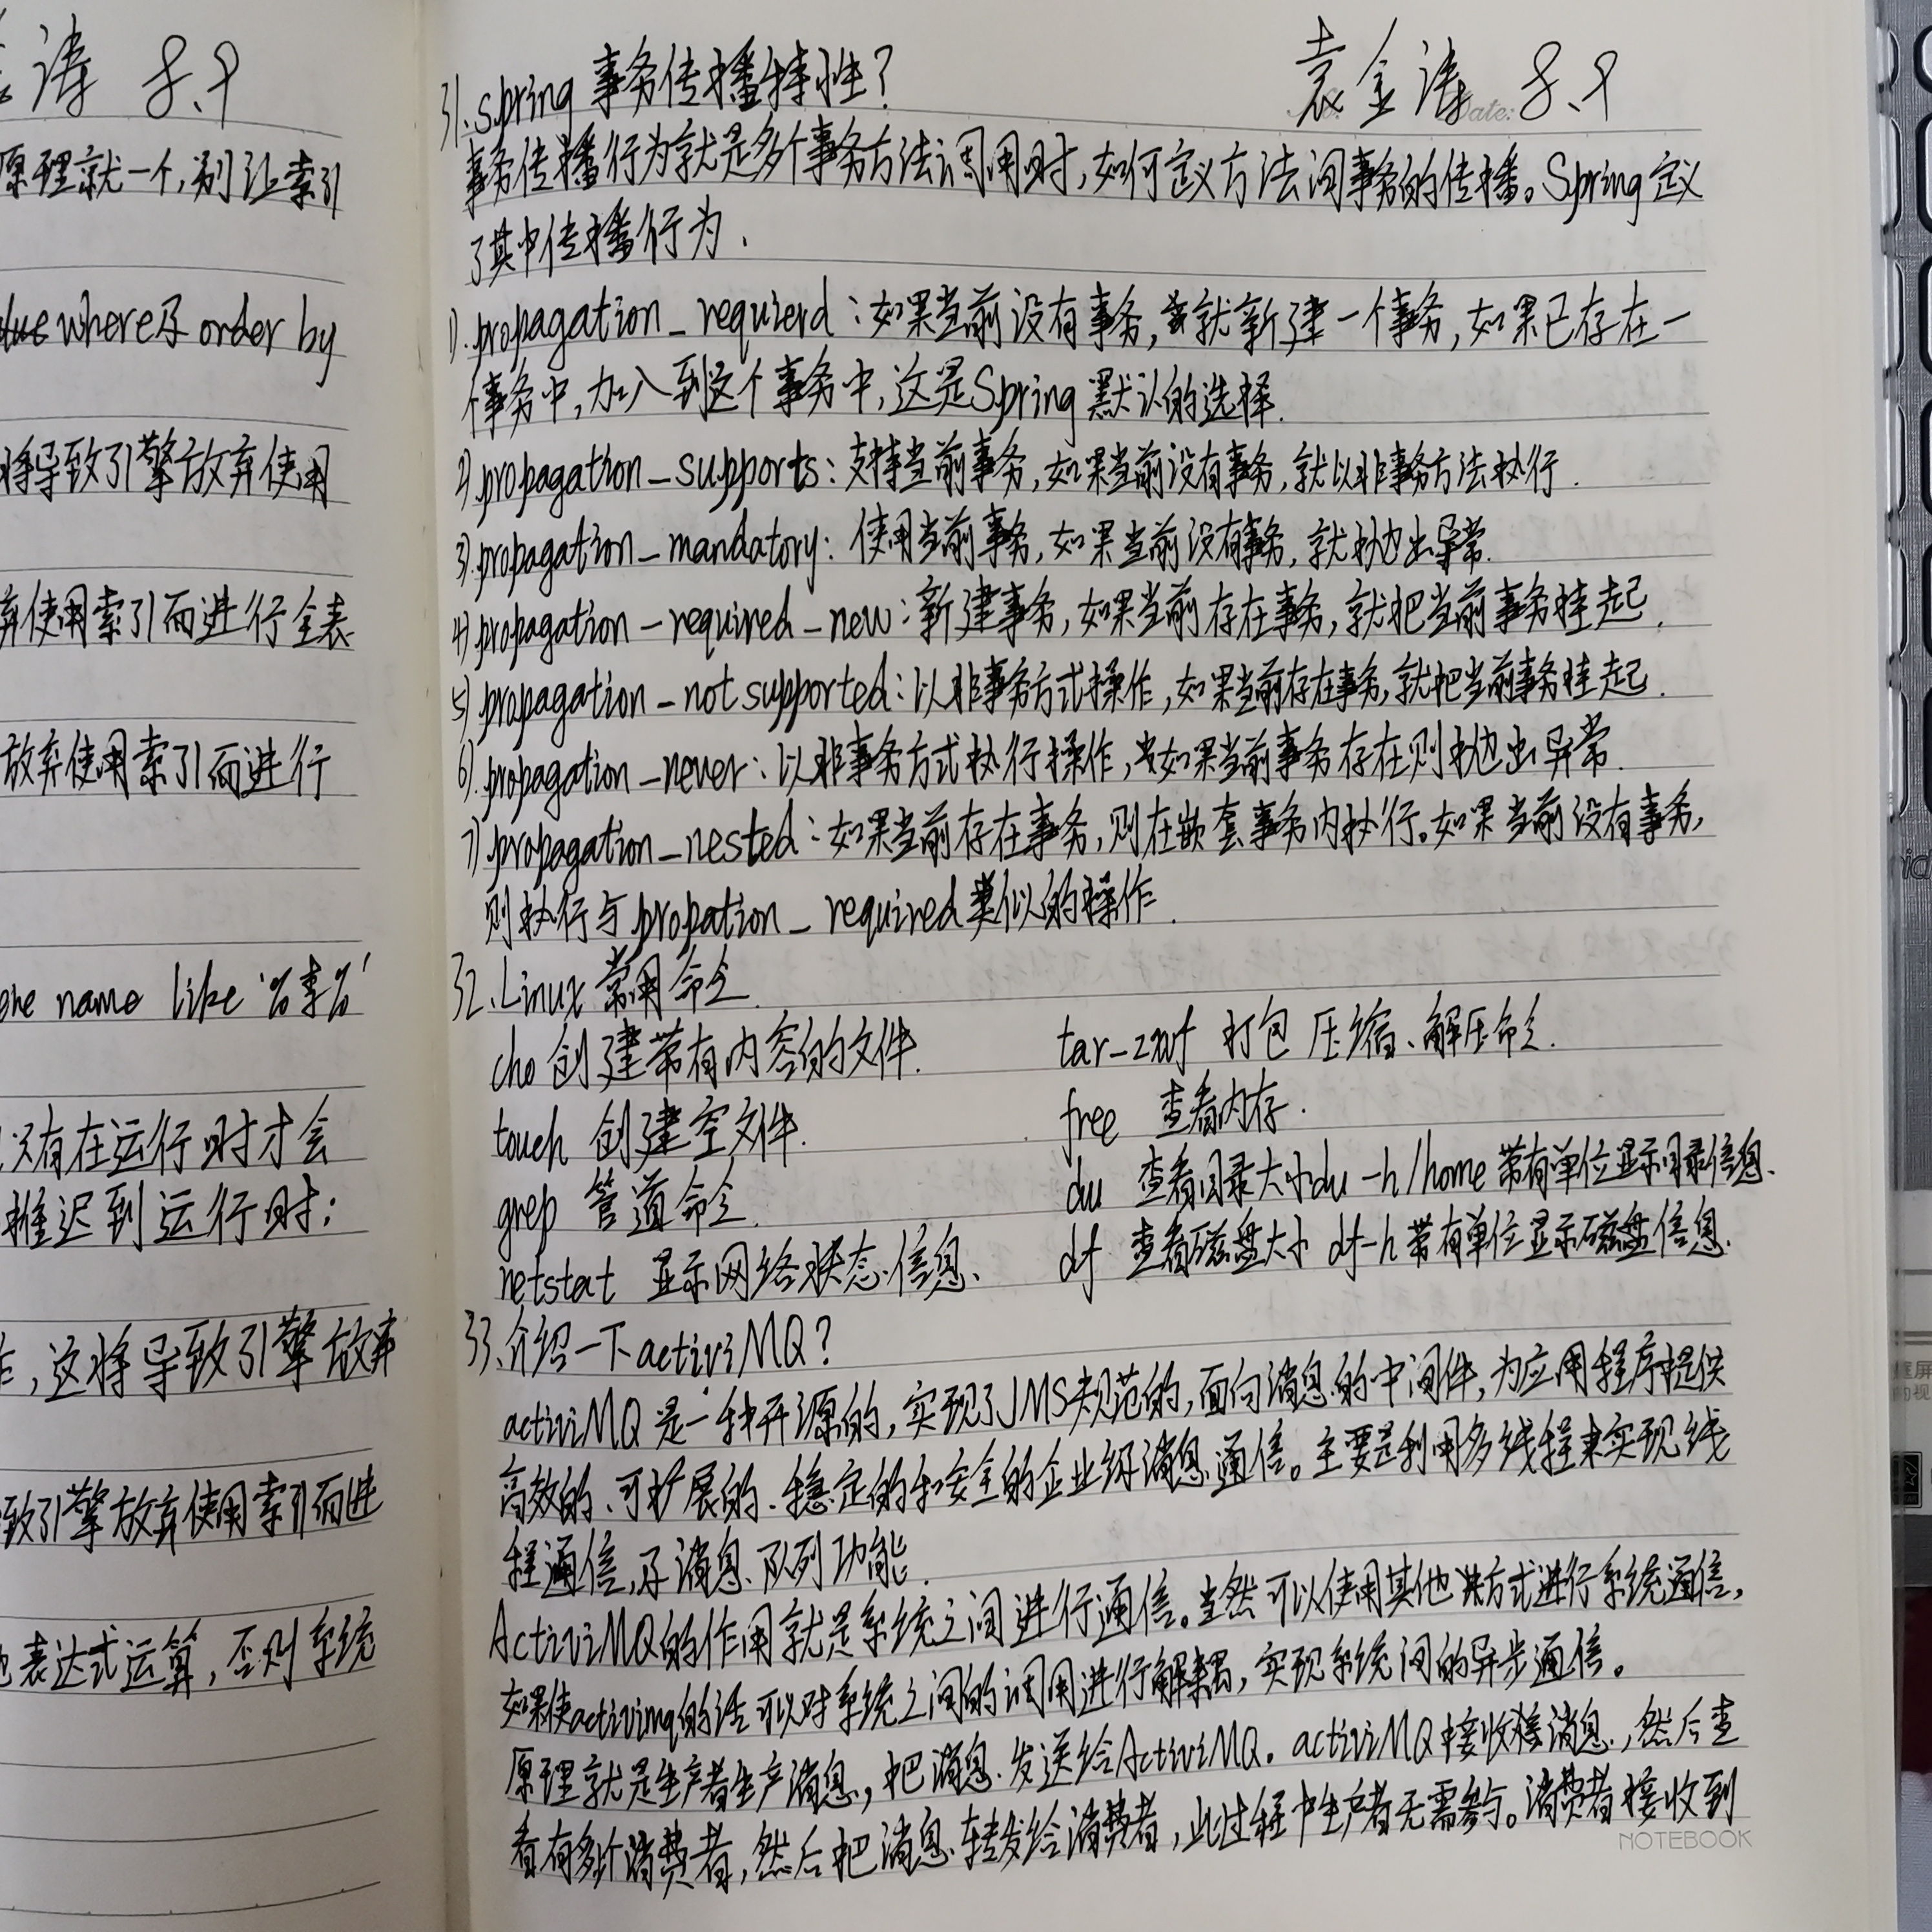 涛 8.9
原理就一个,别让索引
where及 order by
将导致引擎放弃使用
弃使用索引而进行全表
放弃使用索引而进行
name like '%李%'
只有在运行时才会
推迟到运行时;
,这将导致引擎放弃
致引擎放弃使用索引而进
表达式运算,否则系统
袁金涛 8.9
Date:
31.spring 事务传播特性?
事务传播行为就是多个事务方法调用时,如何定义方法间事务的传播。Spring定义
了其中传播行为.
1).propagation_requierd:如果当前没有事务,就新建一个事务,如果已存在一
个事务中,加入到这个事务中,这是Spring默认的选择.
2).propagation_supports:支持当前事务,如果当前没有事务,就以非事务方法执行.
3).propagation_mandatory:使用当前事务,如果当前没有事务,就抛出异常.
4).propagation_required_new:新建事务,如果当前存在事务,就把当前事务挂起.
5).propagation_not supported:以非事务方式操作,如果当前存在事务,就把当前事务挂起.
6).propagation_never:以非事务方式执行操作,如果当前事务存在则抛出异常.
7).propagation_nested:如果当前存在事务,则在嵌套事务内执行。如果当前没有事务,
则执行与propation_required类似的操作.
32.Linux 常用命令.
cho 创建带有内容的文件. tar-zxvf 打包 压缩、解压命令.
touch 创建空文件. free 查看内存.
grep 管道命令. du 查看目录大小du -h /home 带有单位显示目录信息.
netstat 显示网络状态信息、 df 查看磁盘大小 df-h 带有单位显示磁盘信息.
33.介绍一下activiMQ?
activiMQ是一种开源的,实现了JMS规范的,面向消息的中间件,为应用程序提供
高效的、可扩展的、稳定的和安全的企业级消息通信。主要是利用多线程来实现线
程通信,及消息队列功能.
ActiviMQ的作用就是系统之间进行通信。当然可以使用其他方式进行系统通信,
如果使activimq的话可以对系统之间的调用进行解耦,实现系统间的异步通信。
原理就是生产者生产消息,把消息发送给ActiviMQ。activiMQ接收消息,然后查
看有多少个消费者,然后把消息转发给消费者,此过程中生产者无需参与。消费者接收到
NOTEBOOK